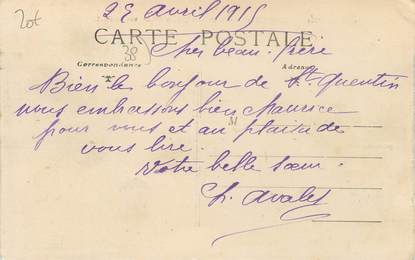 25 avril 1915
Lot
CARTE POSTALE
38
Cher beau-frère
Correspondance
Adresse
Bien le bonjour de St Quentin
nous embrassons bien Maurice
pour vous et au plaisir de
vous lire.
Votre belle sœur.